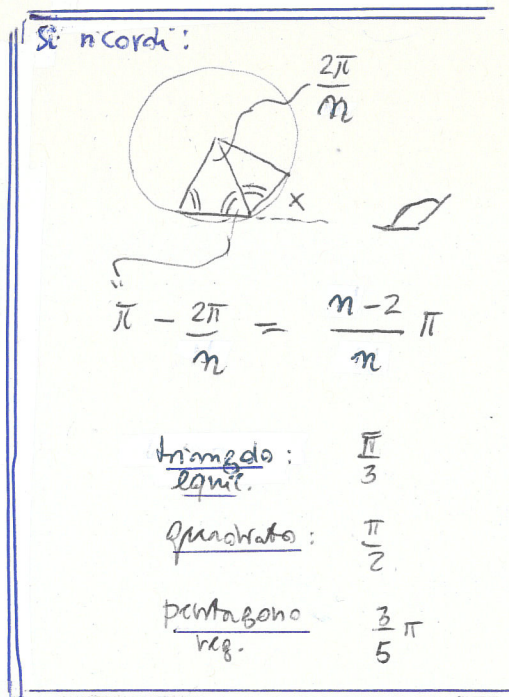 Si ricordi:
2π/n
x
π - 2π/n = n-2/n π
triangolo: π/3
equil.
quadrato: π/2
pentagono 3/5 π
reg.